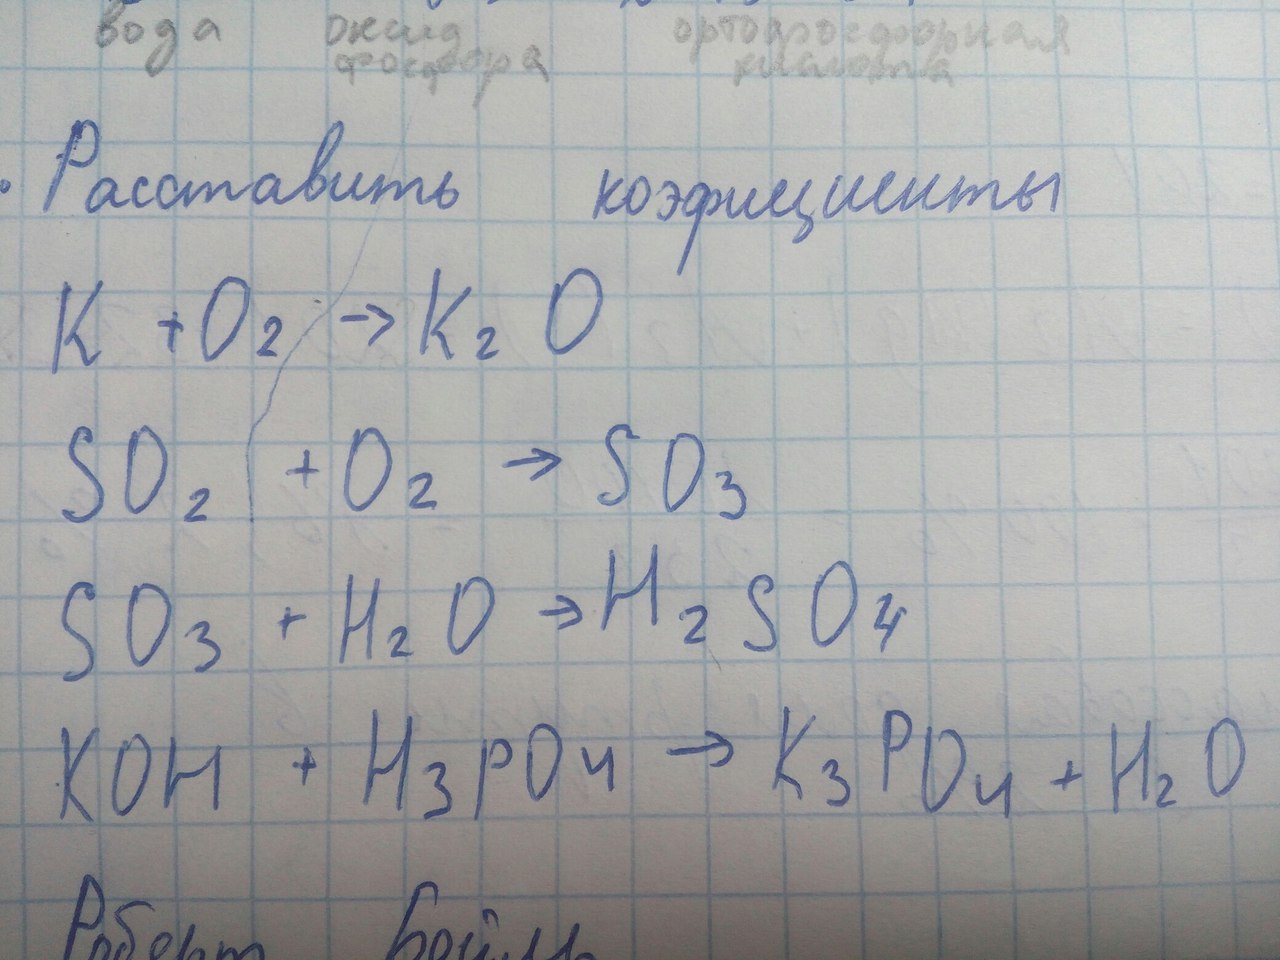 вода оксид ортофосфорная
фосфора кислота
Расставить коэфициенты
K + O₂ → K₂O
SO₂ + O₂ → SO₃
SO₃ + H₂O → H₂SO₄
KOH + H₃PO₄ → K₃PO₄ + H₂O
Роберт Бойль